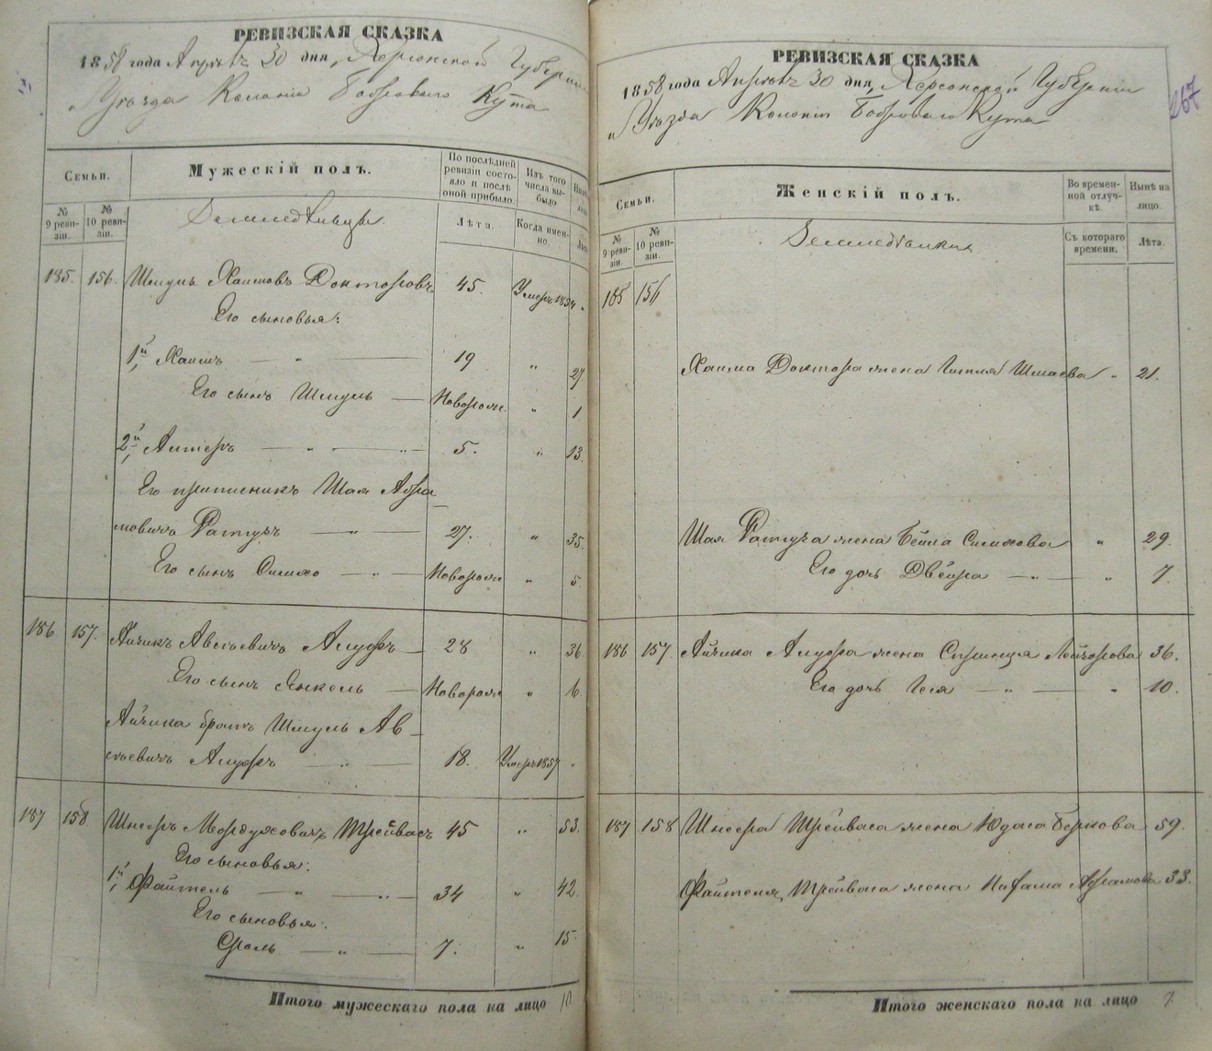 РЕВИЗСКАЯ СКАЗКА
1858 года Апреля 30 дня, Херсонской Губерніи
" Уезда Колоніи Бобровый Кутъ
Семьи.
Мужескій полъ.
По послѣдней ревизіи состояло и послѣ оной прибыло.
Изъ того числа выбыло
№ 9 ревизіи.
№ 10 ревизіи.
Земледѣльцы
Лѣта.
Когда именно.
185. 156. Шмуль Хаимовъ Докторовъ 45. Умеръ 1854 "
Его сыновья:
1й, Хаимъ — " — 19 " 27
Его сынъ Шмуль — Новорож. " 1
2й, Алтеръ — " — " — 5. " 13.
Его приписникъ Шая Абра
мовичъ Ратухъ — " — 27. " 35.
Его сынъ Симхо — " — Новорож " 5.
186 157. Айзикъ Авсеевичъ Алуфъ — 28 " 36
Его сынъ Янкель — Новорож " 6.
Айзика братъ Шмуль Ав
сеевичъ Алуфъ — " — 18. Умеръ 1857 "
187 158. Шнееръ Мордуховичъ Трейвасъ 45 " 53.
Его сыновья:
1й, Файтель — " — " — 34 " 42.
Его сыновья:
Сроль — " — 7. " 15.
Итого мужескаго пола на лицо 10
РЕВИЗСКАЯ СКАЗКА
1858 года Апреля 30 дня, Херсонской Губерніи
" Уезда Колоніи Бобровый Кутъ
267
Семьи.
Женскій полъ.
Во временной отлучкѣ.
Нынѣ на лицо.
№ 9 ревизіи.
№ 10 ревизіи.
Земледѣлки
Съ котораго времени.
Лѣта.
185 156
Хаима Доктора жена Гитля Шмаева " 21.
Шая Ратуха жена Бейла Симхова " 29.
Его дочь Двейра — " — " 7.
186 157. Айзика Алуфа жена Спринця Лейзорова 36.
Его дочь Геся — " — " 10.
187 158 Шнеера Трейваса жена Юдаса Беркова 59.
Файтеля Трейваса жена Абрамова 33.
Итого женскаго пола на лицо 7.